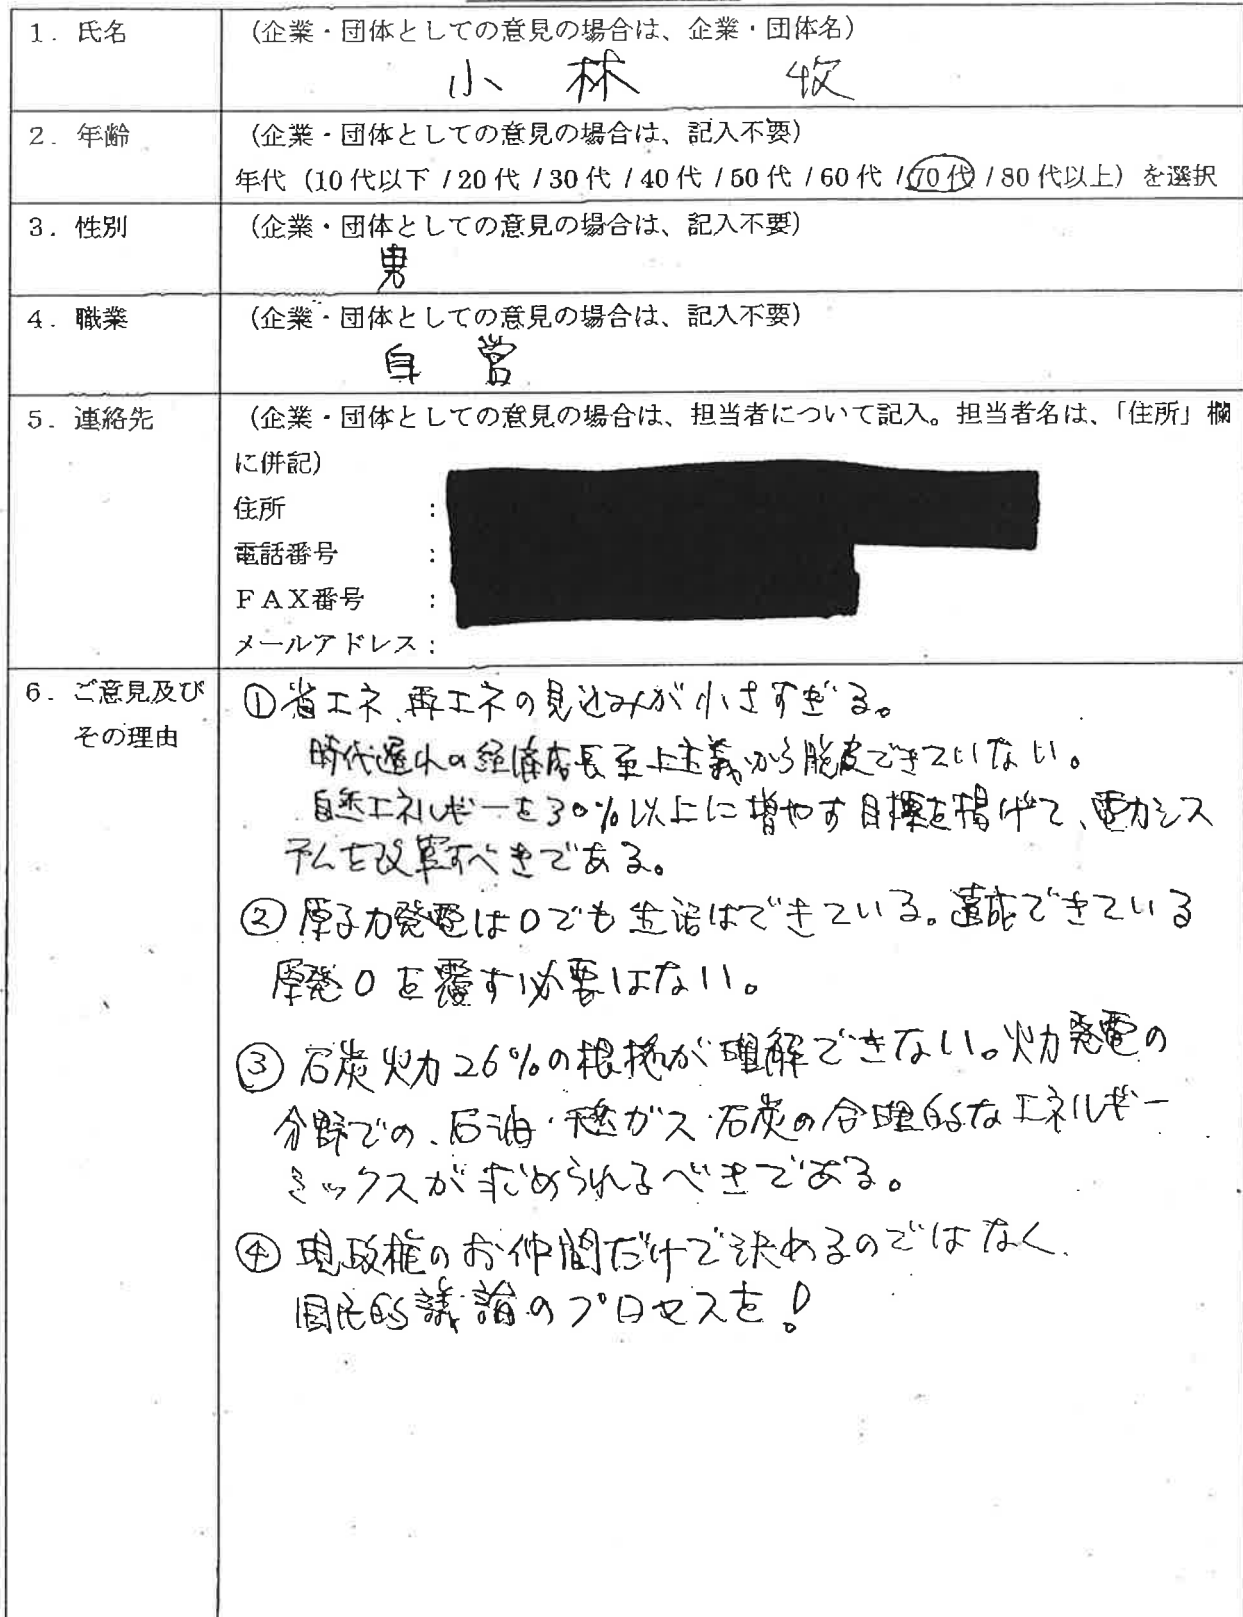 1．氏名
(企業・団体としての意見の場合は、企業・団体名)
小林 牧
2．年齢
(企業・団体としての意見の場合は、記入不要)
年代（10代以下 / 20代 / 30代 / 40代 / 50代 / 60代 / 70代 / 80代以上）を選択
3．性別
(企業・団体としての意見の場合は、記入不要)
男
4．職業
(企業・団体としての意見の場合は、記入不要)
自営
5．連絡先
(企業・団体としての意見の場合は、担当者について記入。担当者名は、「住所」欄
に併記)
住所 ：
電話番号 ：
ＦＡＸ番号 ：
メールアドレス：
6．ご意見及び
その理由
①省エネ、再エネの見込みが小さすぎる。
時代遅れの経済成長至上主義から脱皮できていない。
自然エネルギーを30%以上に増やす目標を掲げて、電力シス
テムを改革すべきである。
②原子力発電は0でも生活はできている。達成できている
原発0を覆す必要はない。
③石炭火力26%の根拠が理解できない。火力発電の
分野での、石油・天然ガス・石炭の合理的なエネルギー
ミックスが求められるべきである。
④現政権のお仲間だけで決めるのではなく、
国民的議論のプロセスを！